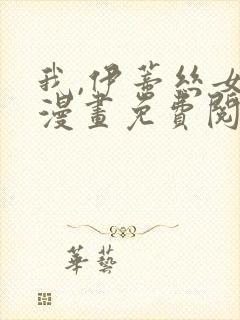 我,伊蒂丝女
漫畫免費閱
華藝